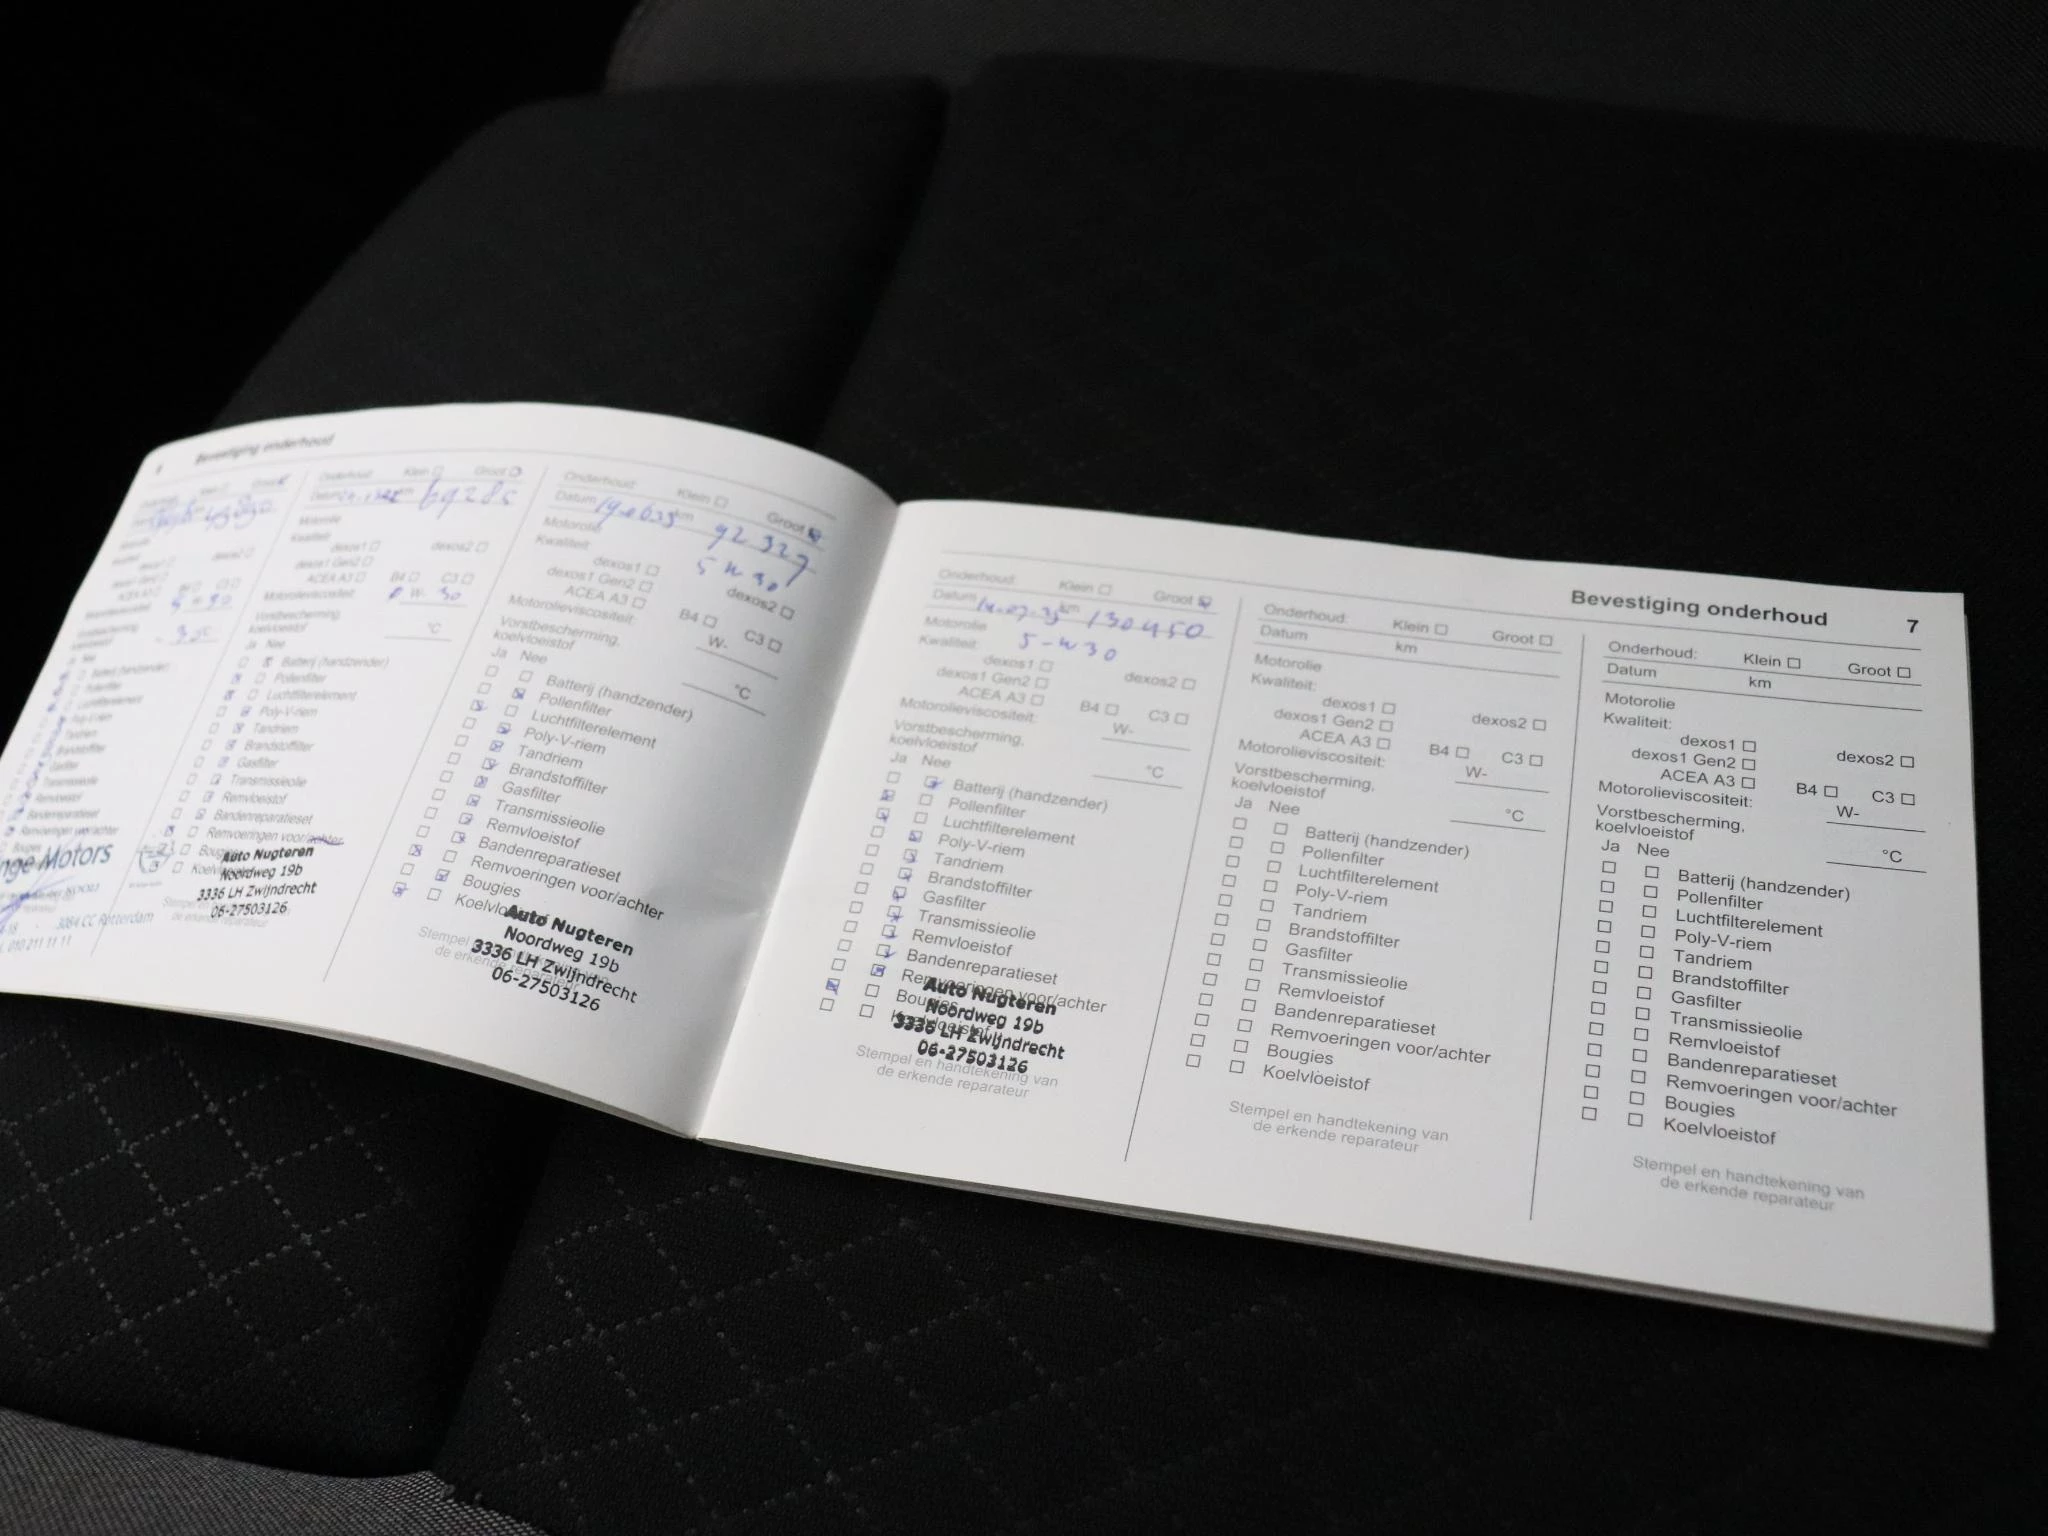 6 Bevestiging onderhoud
Groot
45890
5 W 30
Ja Nee
Batterij (handzender)
Pollenfilter
Luchtfilterelement
Poly-V-riem
Tandriem
Brandstoffilter
Gasfilter
Transmissieolie
Remvloeistof
Bandenreparatieset
Remvoeringen voor/achter
Bougies
nge Motors
3084 CC Rotterdam
010 211 11 11
Onderhoud: Klein Groot
Datum km 69285
Motorolie
Kwaliteit:
dexos1 dexos2
dexos1 Gen2
ACEA A3 B4 C3
Motorolieviscositeit: 0 W- 30
Vorstbescherming,
koelvloeistof °C
Ja Nee
Batterij (handzender)
Pollenfilter
Luchtfilterelement
Poly-V-riem
Tandriem
Brandstoffilter
Gasfilter
Transmissieolie
Remvloeistof
Bandenreparatieset
Remvoeringen voor/achter
Bougies
Koelvloeistof
Auto Nugteren
Noordweg 19b
3336 LH Zwijndrecht
06-27503126
Onderhoud: Klein Groot
Datum km 92327
Motorolie 5 W 30
Kwaliteit:
dexos1 dexos2
dexos1 Gen2
ACEA A3 B4 C3
Motorolieviscositeit: W-
Vorstbescherming,
koelvloeistof °C
Ja Nee
Batterij (handzender)
Pollenfilter
Luchtfilterelement
Poly-V-riem
Tandriem
Brandstoffilter
Gasfilter
Transmissieolie
Remvloeistof
Bandenreparatieset
Remvoeringen voor/achter
Bougies
Koelvloeistof
Auto Nugteren
Noordweg 19b
3336 LH Zwijndrecht
06-27503126
Stempel en handtekening van
de erkende reparateur
Bevestiging onderhoud 7
Onderhoud: Klein Groot
Datum km 130450
Motorolie 5-W 30
Kwaliteit:
dexos1 dexos2
dexos1 Gen2
ACEA A3 B4 C3
Motorolieviscositeit: W-
Vorstbescherming,
koelvloeistof °C
Ja Nee
Batterij (handzender)
Pollenfilter
Luchtfilterelement
Poly-V-riem
Tandriem
Brandstoffilter
Gasfilter
Transmissieolie
Remvloeistof
Bandenreparatieset
Remvoeringen voor/achter
Bougies
Koelvloeistof
Auto Nugteren
Noordweg 19b
3336 LH Zwijndrecht
06-27503126
Stempel en handtekening van
de erkende reparateur
Onderhoud: Klein Groot
Datum km
Motorolie
Kwaliteit:
dexos1 dexos2
dexos1 Gen2
ACEA A3 B4 C3
Motorolieviscositeit: W-
Vorstbescherming,
koelvloeistof °C
Ja Nee
Batterij (handzender)
Pollenfilter
Luchtfilterelement
Poly-V-riem
Tandriem
Brandstoffilter
Gasfilter
Transmissieolie
Remvloeistof
Bandenreparatieset
Remvoeringen voor/achter
Bougies
Koelvloeistof
Stempel en handtekening van
de erkende reparateur
Onderhoud: Klein Groot
Datum km
Motorolie
Kwaliteit:
dexos1 dexos2
dexos1 Gen2
ACEA A3 B4 C3
Motorolieviscositeit: W-
Vorstbescherming,
koelvloeistof °C
Ja Nee
Batterij (handzender)
Pollenfilter
Luchtfilterelement
Poly-V-riem
Tandriem
Brandstoffilter
Gasfilter
Transmissieolie
Remvloeistof
Bandenreparatieset
Remvoeringen voor/achter
Bougies
Koelvloeistof
Stempel en handtekening van
de erkende reparateur